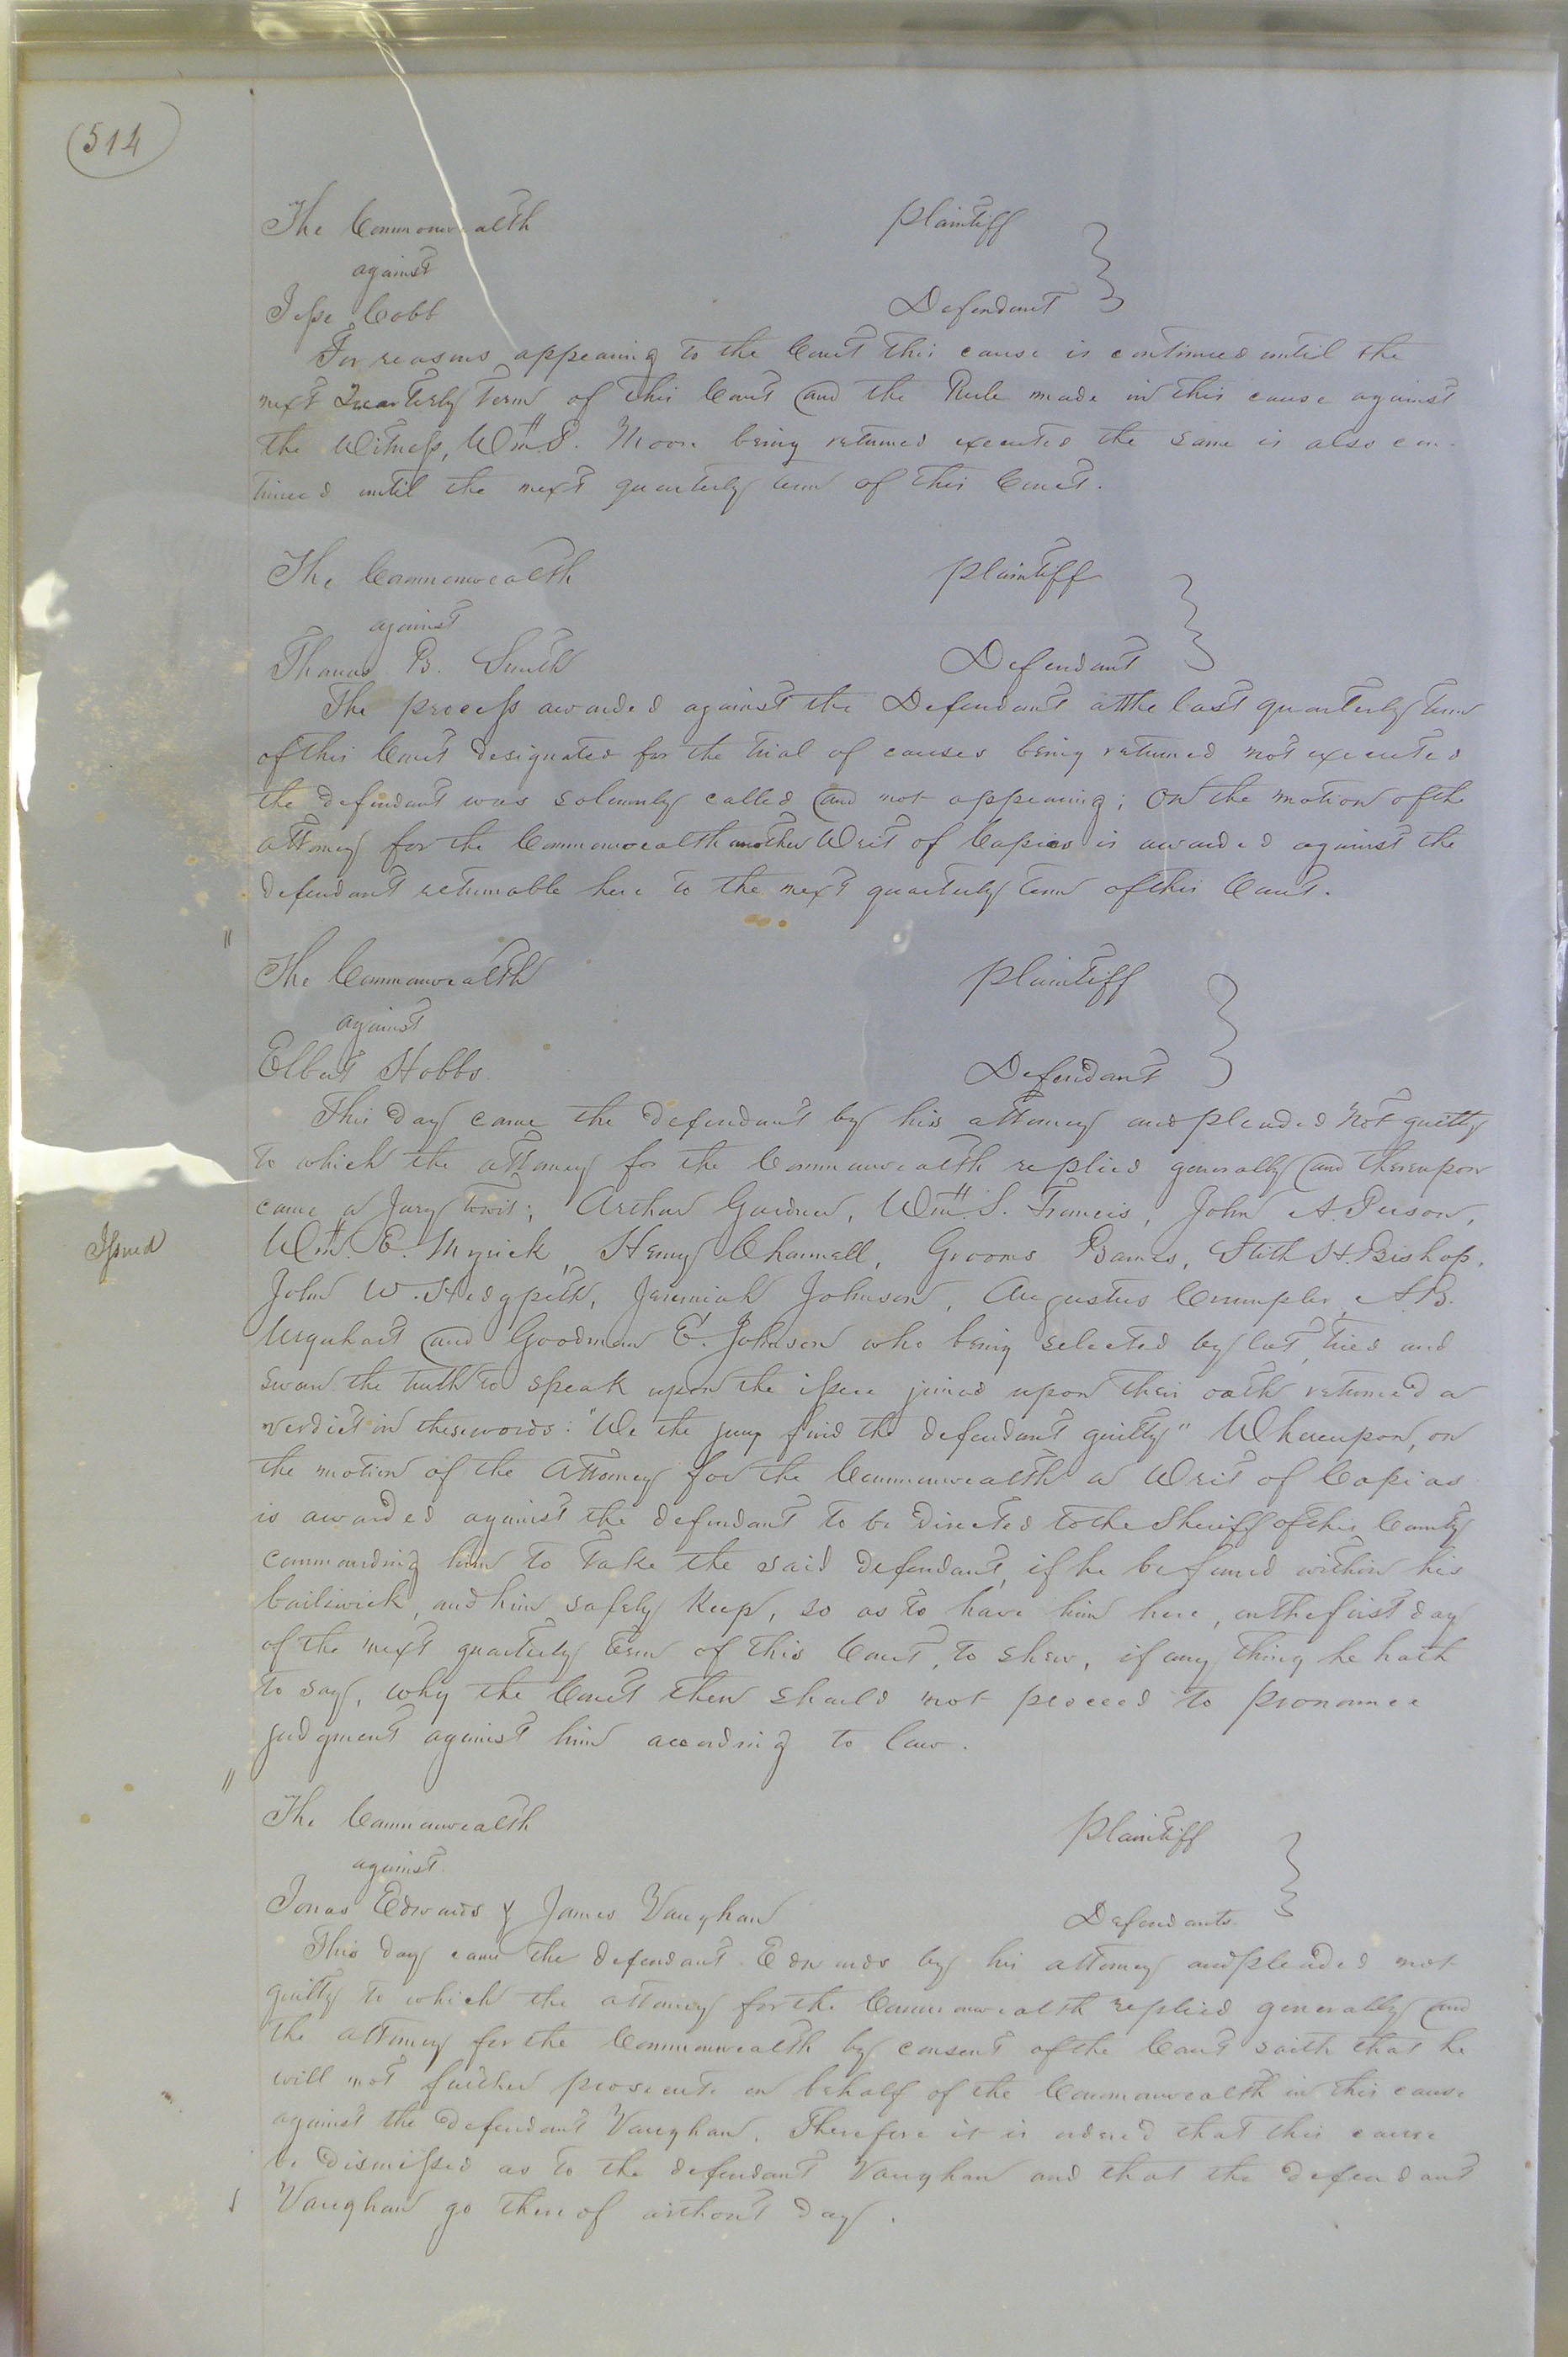 514
The Commonwealth Plaintiff
against
Jesse Cobb Defendant
For reasons appearing to the Court this cause is continued until the
next Quarterly Term of this Court and the Rule made in this cause against
the Witness, Wm. S. Moore being returned executed the same is also con-
tinued until the next quarterly term of this Court.
The Commonwealth Plaintiff
against
Thomas B. Smith Defendant
The process awarded against the Defendant at the last quarterly term
of this Court designated for the trial of causes being returned not executed
the defendant was solemnly called and not appearing; On the motion of the
attorney for the Commonwealth another Writ of Capias is awarded against the
defendant returnable here to the next quarterly term of this Court.
"
The Commonwealth Plaintiff
against
Elbert Hobbs Defendant
This day came the defendant by his attorney and pleaded not guilty
to which the attorney for the Commonwealth replied generally and thereupon
came a Jury towit; Arthur Gardner, Wm. S. Francis, John A. Person,
Issued
Wm. E. Myrick, Henry Channell, Grooms Barnes, Stith H. Bishop,
John W. Hedgpeth, Jeremiah Johnson, Augustus Crumpler, A.B.
Urquhart and Goodman E. Johnson who being selected by lot, tried and
sworn the truth to speak upon the issue joined upon their oath returned a
verdict in these words: "We the jury find the defendant guilty" Whereupon, on
the motion of the Attorney for the Commonwealth a Writ of Capias
is awarded against the defendant to be directed to the Sheriff of this County
commanding him to take the said defendant, if he be found within his
bailiwick, and him safely Keep, so as to have him here, on the first day
of the next quarterly term of this Court, to shew, if any thing he hath
to say, why the Court then should not proceed to pronounce
judgment against him according to law.
"
The Commonwealth Plaintiff
against
Jonas Edwards & James Vaughan Defendants
This day came the defendant Edwards by his attorney and pleaded not
guilty to which the attorney for the Commonwealth replied generally and
the attorney for the Commonwealth by consent of the Court saith that he
will not further prosecute on behalf of the Commonwealth in this cause
against the defendant Vaughan. Therefore it is ordered that this cause
be dismissed as to the defendant Vaughan and that the defendant
Vaughan go thereof without day.